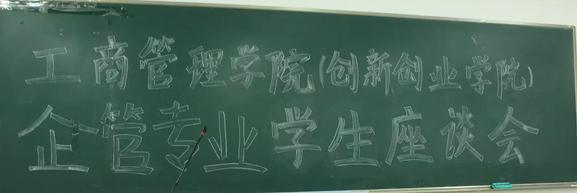 工商管理学院(创新创业学院)
企管专业学生座谈会